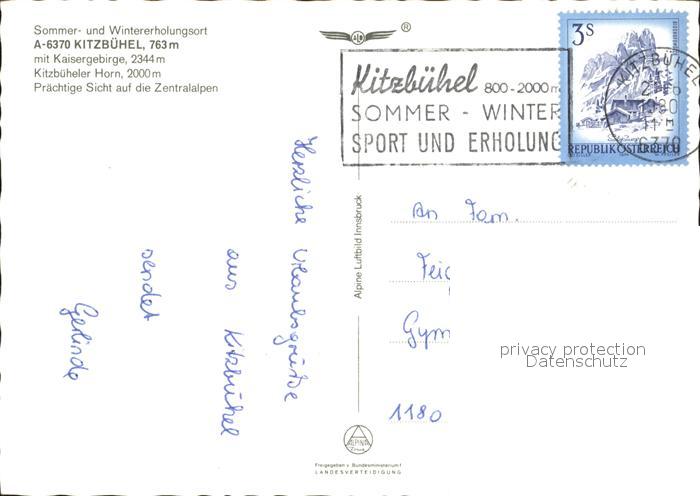 Sommer- und Wintererholungsort
A-6370 KITZBÜHEL, 763 m
mit Kaisergebirge, 2344 m
Kitzbüheler Horn, 2000 m
Prächtige Sicht auf die Zentralalpen
®
Kitzbühel 800-2000 m
SOMMER - WINTER
SPORT UND ERHOLUNG
3 S
REPUBLIK ÖSTERREICH
KITZBÜHEL
6370
Herzliche Urlaubsgrüße
aus Kitzbühel
sendet
Gerlinde
Alpine Luftbild Innsbruck
An Fam.
Feic
Gym
1180
privacy protection
Datenschutz
ALPINE
Freigegeben v. Bundesministerium f.
LANDESVERTEIDIGUNG